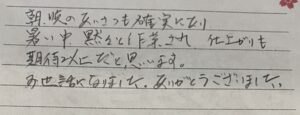 朝、晩のあいさつも確実になり
暑い中 黙々と作業され 仕上がりも
期待以上だと思います。
お世話になりました。ありがとうございました。